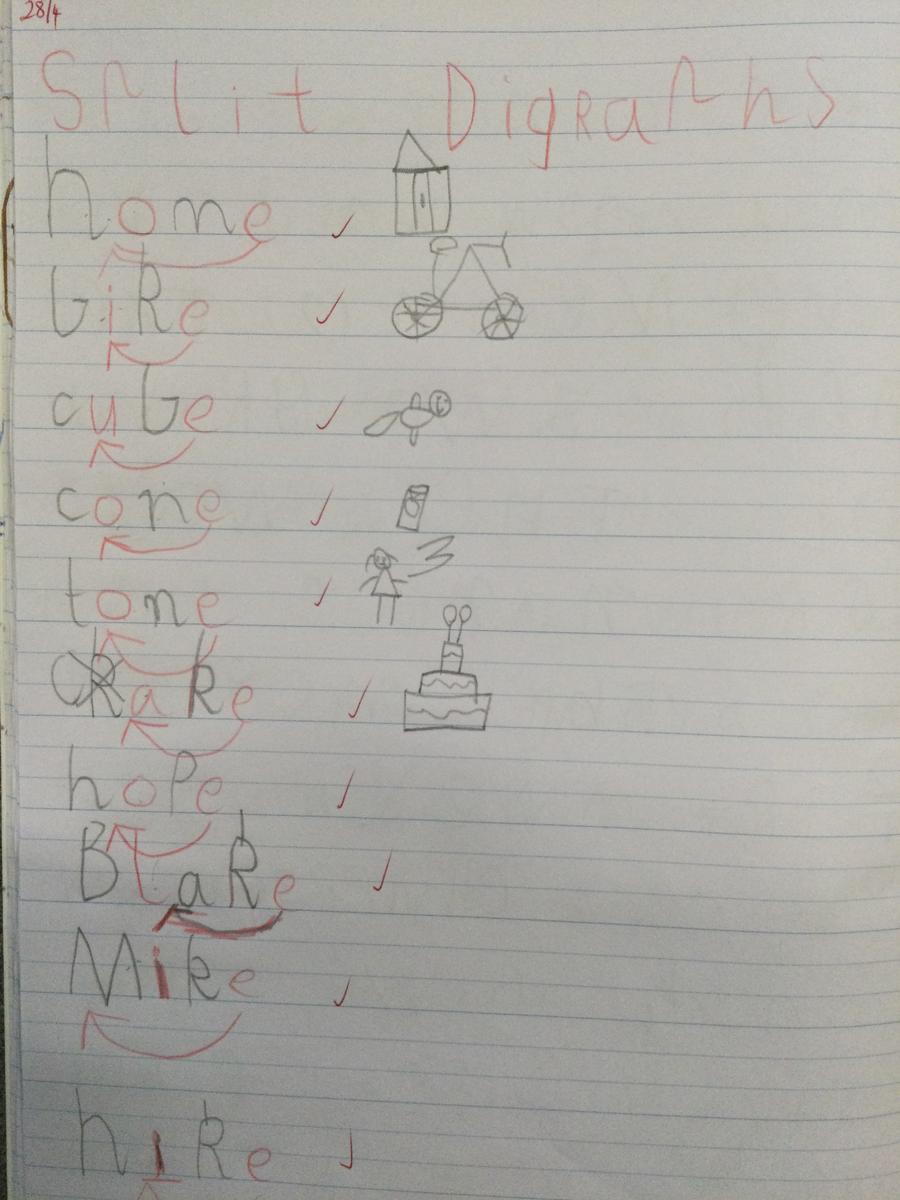 28/4
Split Digraphs
home
bike
cube
cone
tone
cake
hope
Blake
Mike
hike